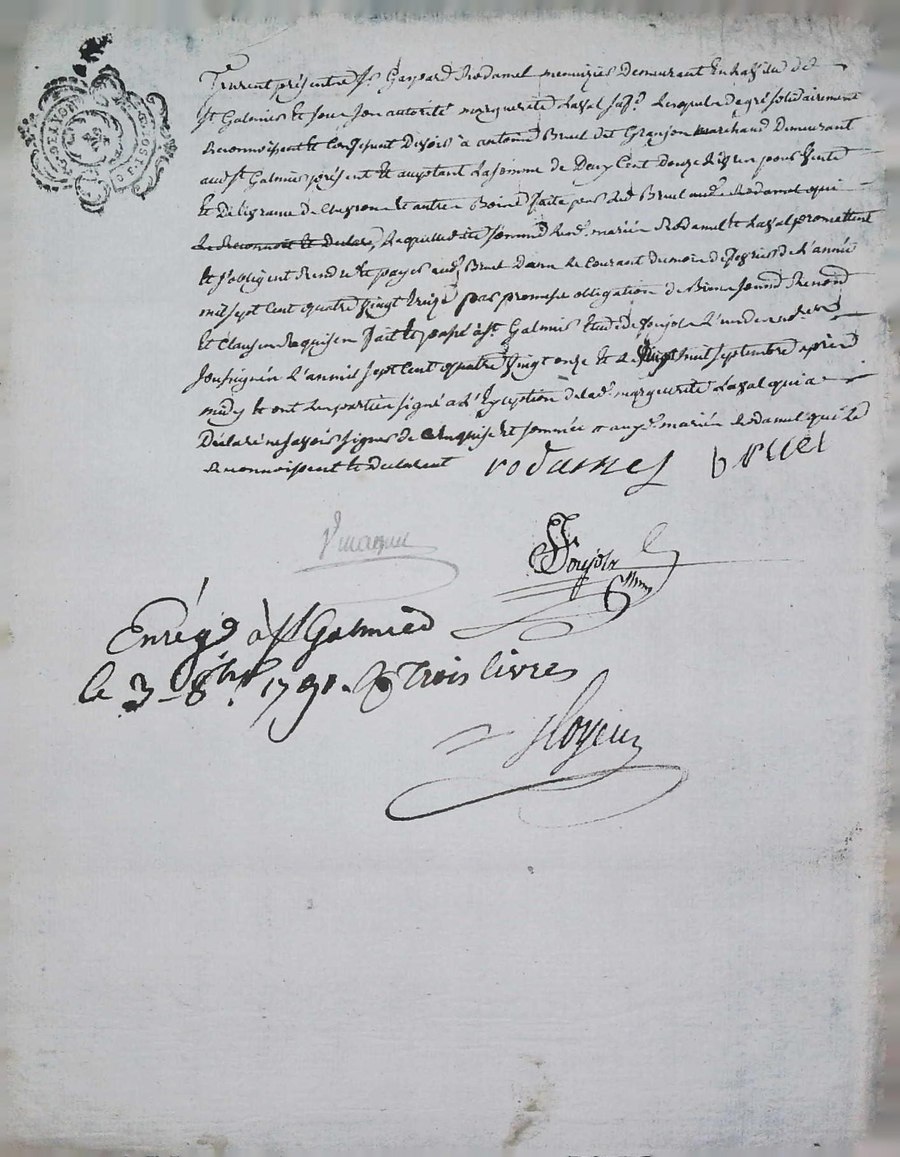 Furent présentre Sr. Gaspard Rodamel menuizier demeurant En la ville de
St Galmier Et sous son autorité marguerite Laval sa fe. Lesquels de gré solidairement
Reconnoissent Et Confessent devoir à antoine Bruel dit Granjon marchand Demeurant
aud. St Galmier présent Et acceptant La somme de Deux Cent Douze Livres pour vente
Et Délivrance de Et autres Boird faite par led. Bruel aud. Rodamel qui
Le Reconnoit Et Déclare, Laquelle dte somme lesd. mariés Rodamel Et Laval promettent
Et s'obligent Rendre Et payer aud. Bruel dans Le Courant du mois de fevrier de L'année
mil sept Cent quatre vingt treize par promesse obligation de Biens soumn. Renond
Et Clauses Requises fait Et passé à St. Galmier Etude de Soujols L'un des notres
soussignés L'an mil sept Cent quatre vingt onze Et Le vingt huit septembre après
midy Et ont Les parties signé à L'Exception de lad. marguerite Laval qui a
Déclaré ne savoir signer de Ce Enquise Et sommée aux d. mariés Rodamel qui Le
Reconnoissent Et Declarent rodamel bruel
Soujols
Enrégé à St Galmier
le 3 8bre. 1791. R trois livres